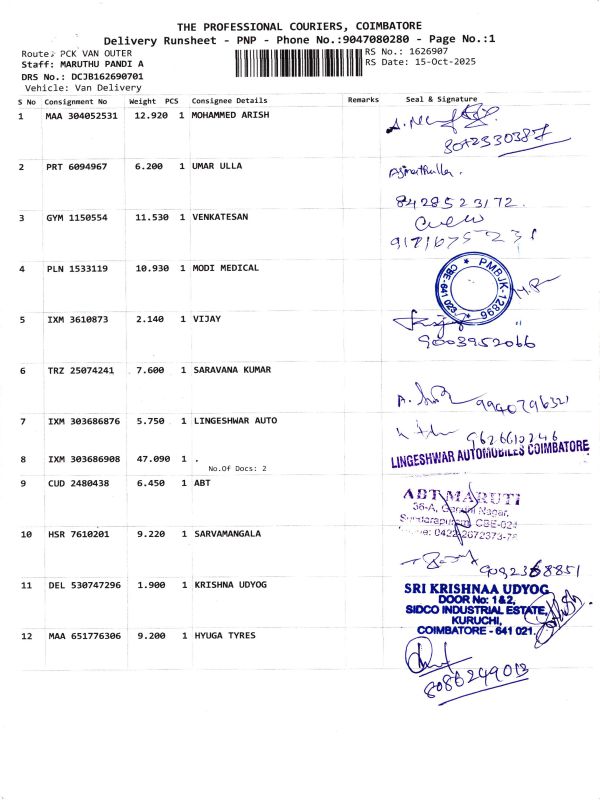 THE PROFESSIONAL COURIERS, COIMBATORE
Delivery Runsheet - PNP - Phone No.:9047080280 - Page No.:1
Route: PCK VAN OUTER
RS No.: 1626907
Staff: MARUTHU PANDI A
RS Date: 15-Oct-2025
DRS No.: DCJB162690701
Vehicle: Van Delivery
S No Consignment No Weight PCS Consignee Details Remarks Seal & Signature
1 MAA 304052531 12.920 1 MOHAMMED ARISH
8072330387
2 PRT 6094967 6.200 1 UMAR ULLA
Asmathulla.
8428523172.
3 GYM 1150554 11.530 1 VENKATESAN
4 PLN 1533119 10.930 1 MODI MEDICAL
PMBJK-12896
CBE-641 023
5 IXM 3610873 2.140 1 VIJAY
9003952066
6 TRZ 25074241 7.600 1 SARAVANA KUMAR
9940796321
7 IXM 303686876 5.750 1 LINGESHWAR AUTO
9626610246
LINGESHWAR AUTOMOBILES COIMBATORE
8 IXM 303686908 47.090 1 .
No.Of Docs: 2
9 CUD 2480438 6.450 1 ABT
ABT MARUTI
36-A, Gandhi Nagar,
Sundarapuram, CBE-024
Phone: 0422-2672373-75
10 HSR 7610201 9.220 1 SARVAMANGALA
9092368851
11 DEL 530747296 1.900 1 KRISHNA UDYOG
SRI KRISHNAA UDYOG
DOOR No: 1&2,
SIDCO INDUSTRIAL ESTATE,
KURUCHI,
COIMBATORE - 641 021.
12 MAA 651776306 9.200 1 HYUGA TYRES
8086249013